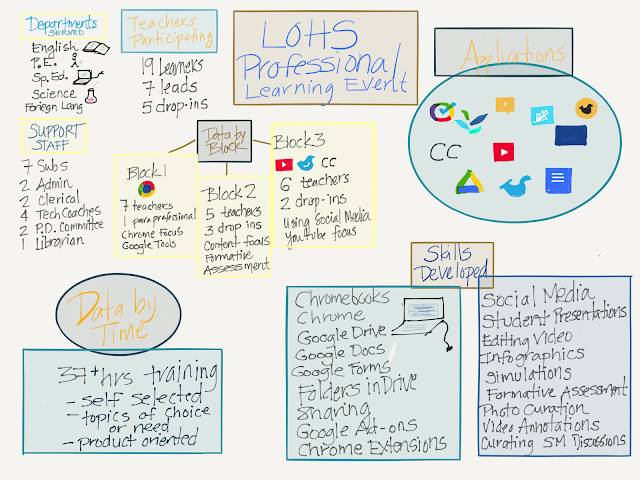 Departments
SERVED
English
P.E.
Sp. Ed.
Science
Foriegn Lang
Teachers
Participating
19 learners
7 leads
5 drop-ins
LOHS
Professional
Learning Event
Applications
CC
SUPPORT
STAFF
7 Subs
2 Admin
2 Clerical
4 Tech Coaches
2 P.D. Committee
1 Librarian
Data by
Block
Block 1
7 teachers
1 paraprofessional
Chrome Focus
Google Tools
Block 2
5 teachers
3 drop ins
Content focus
Formative
Assessment
Block 3
CC
6 teachers
2 drop-ins
Using Social Media
YouTube focus
Data by
Time
37+ hrs training
- self selected
- topics of choice
or need
- product oriented
Skills
Developed
Chromebooks
Chrome
Google Drive
Google Docs
Google Forms
Folders in Drive
Sharing
Google Add-ons
Chrome Extensions
Social Media
Student Presentations
Editing Video
Infographics
Simulations
Formative Assessment
Photo Curation
Video Annotations
Curating SM Discussions